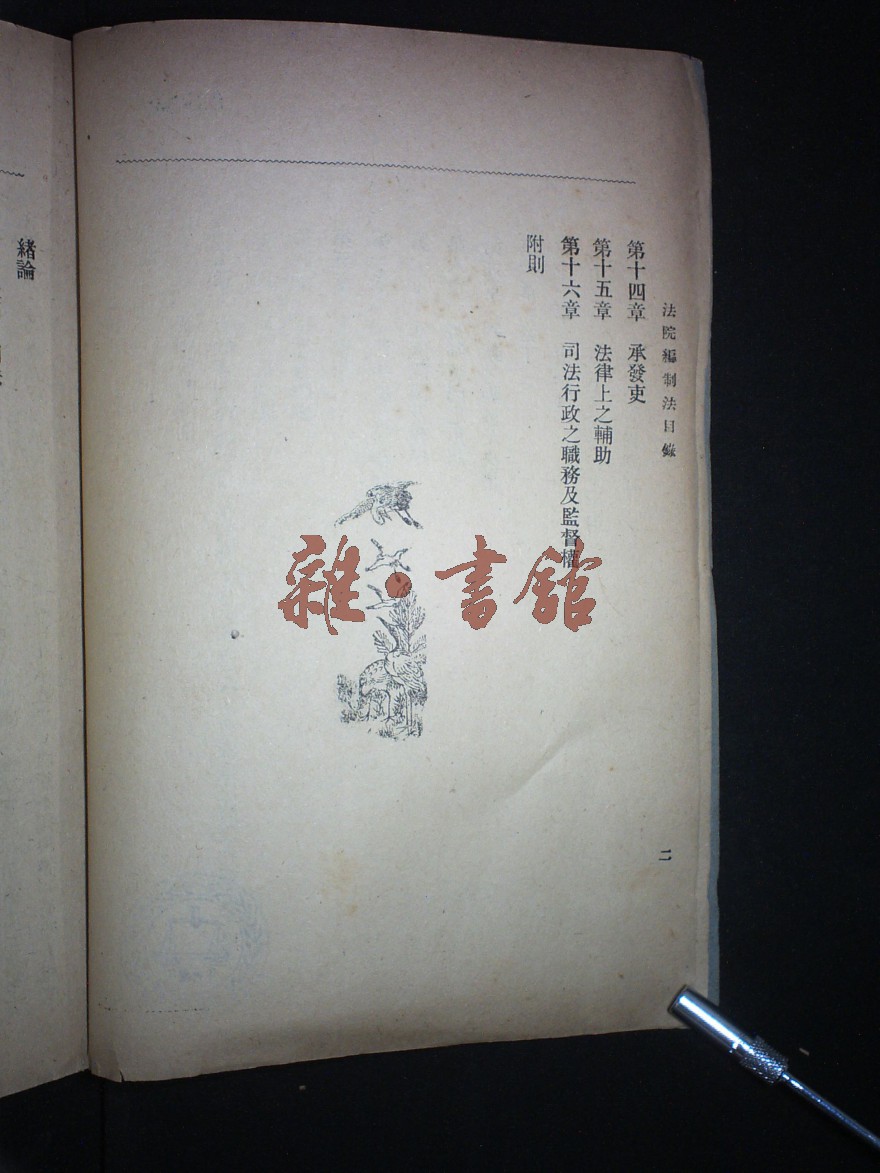 法院編制法目錄
第十四章　承發吏
第十五章　法律上之輔助
第十六章　司法行政之職務及監督權
附則
二
緒論
雜·書館